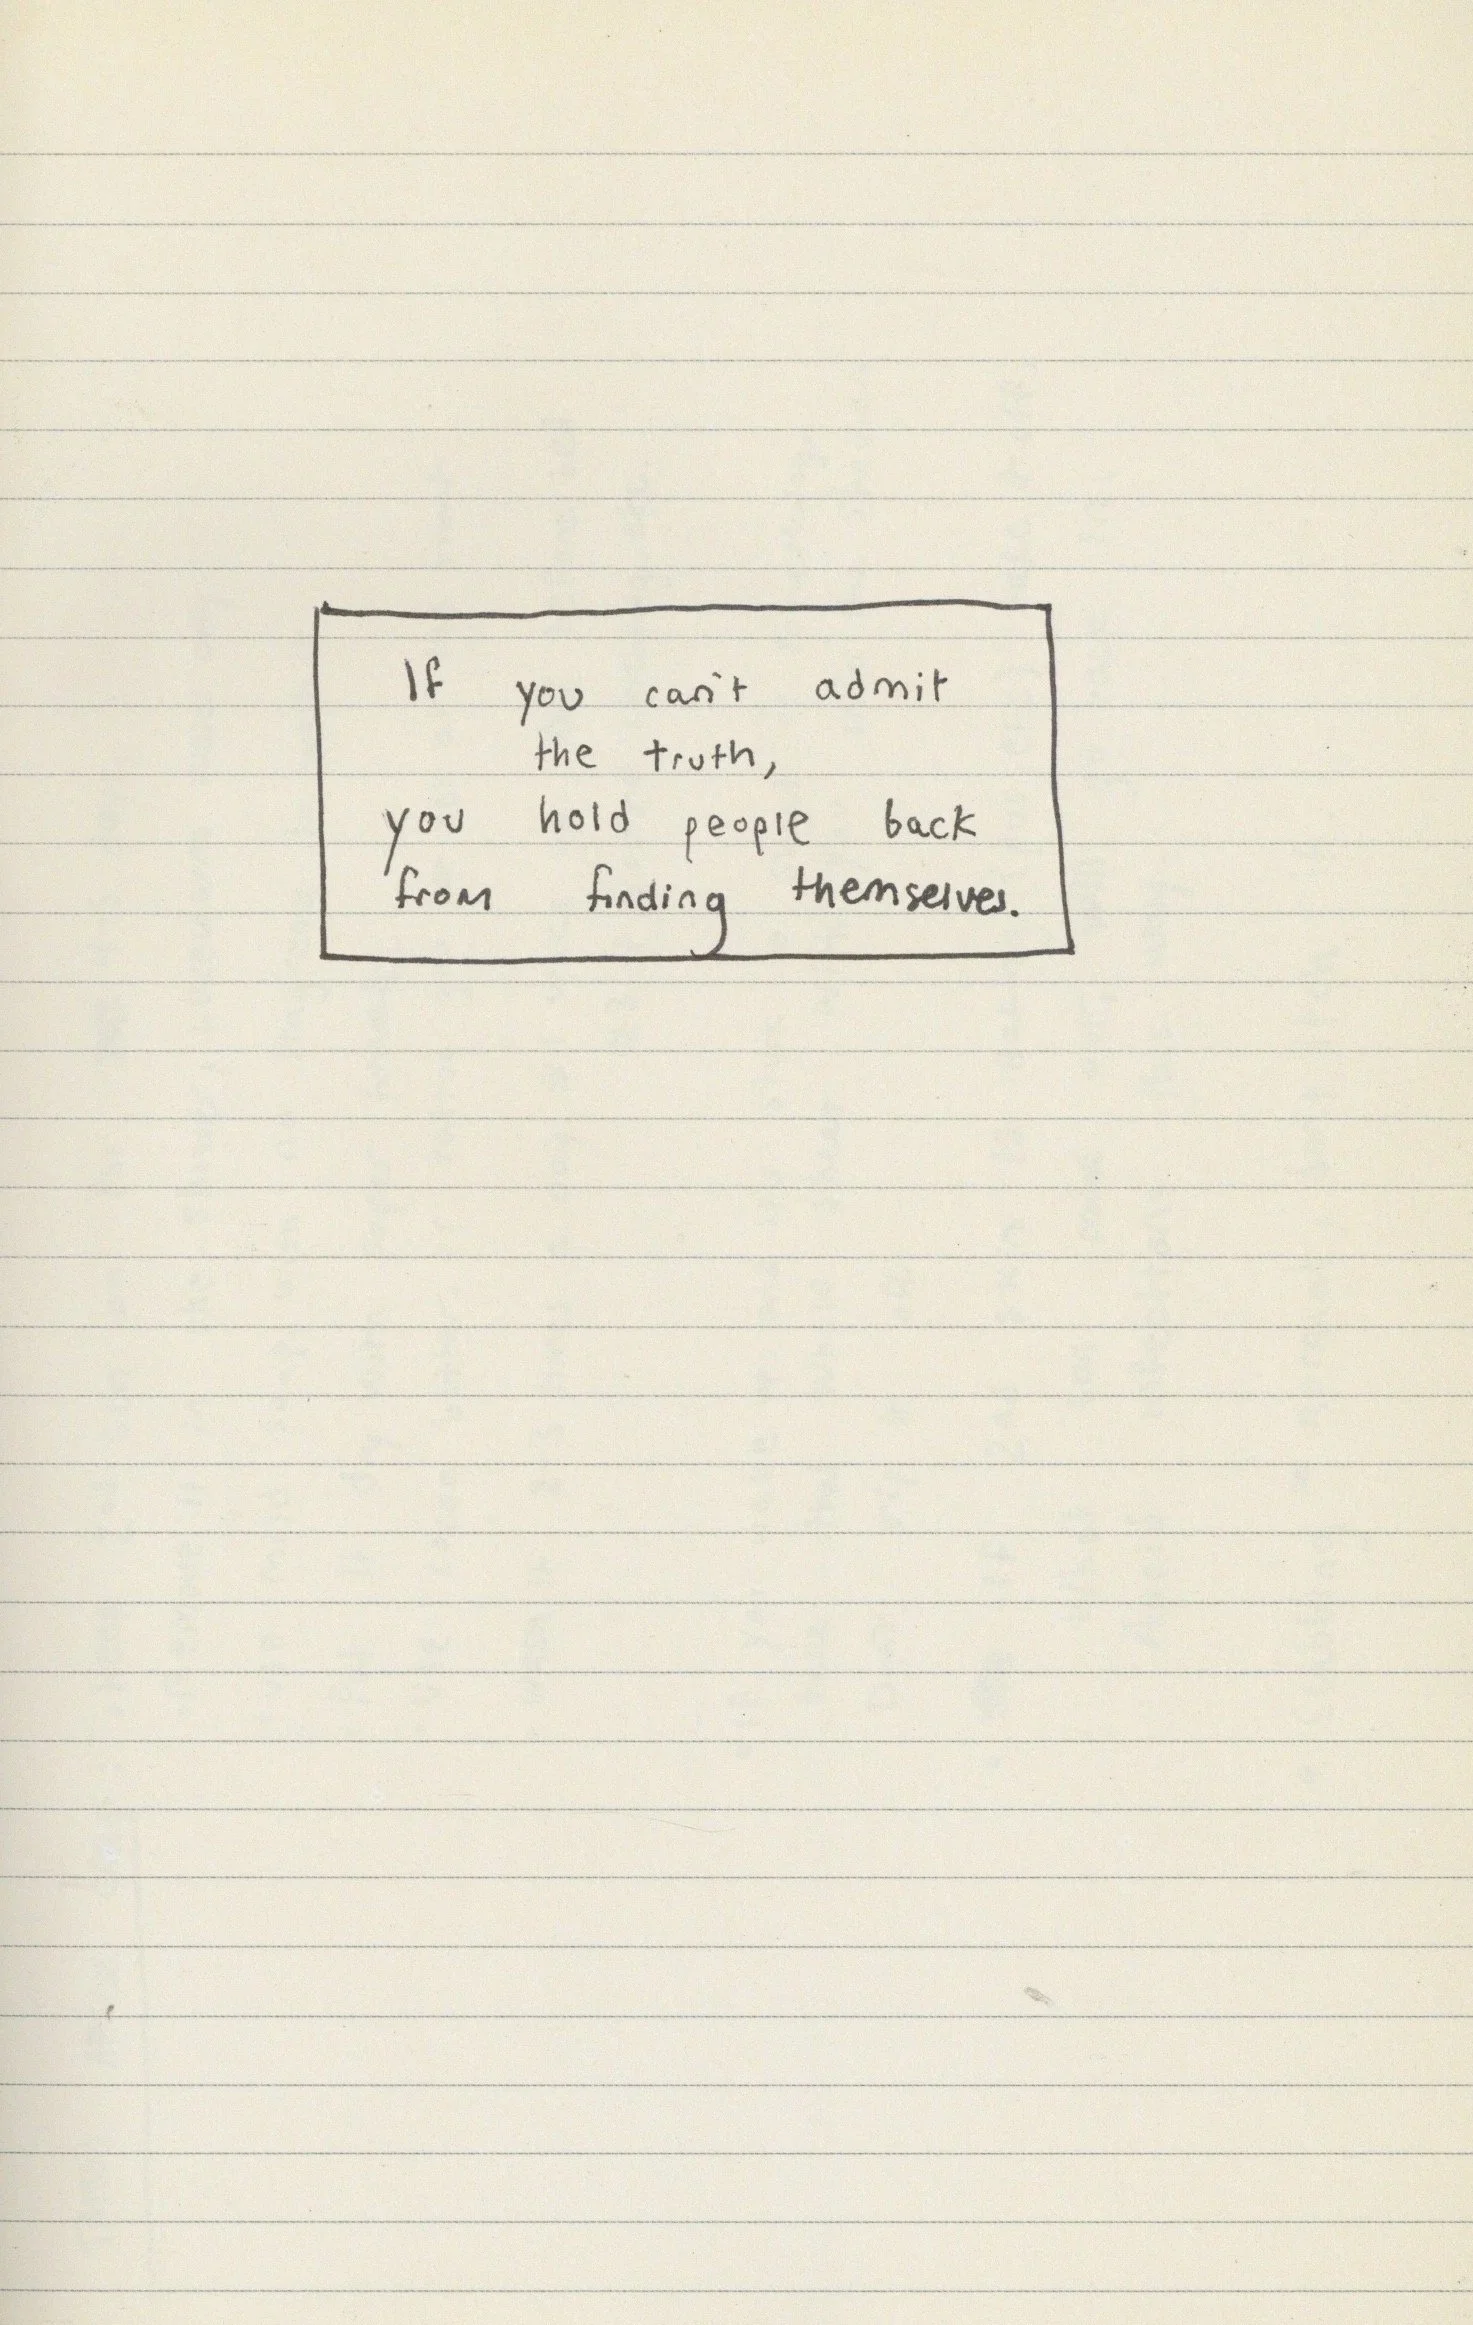 If you can't admit
the truth,
you hold people back
from finding themselves.